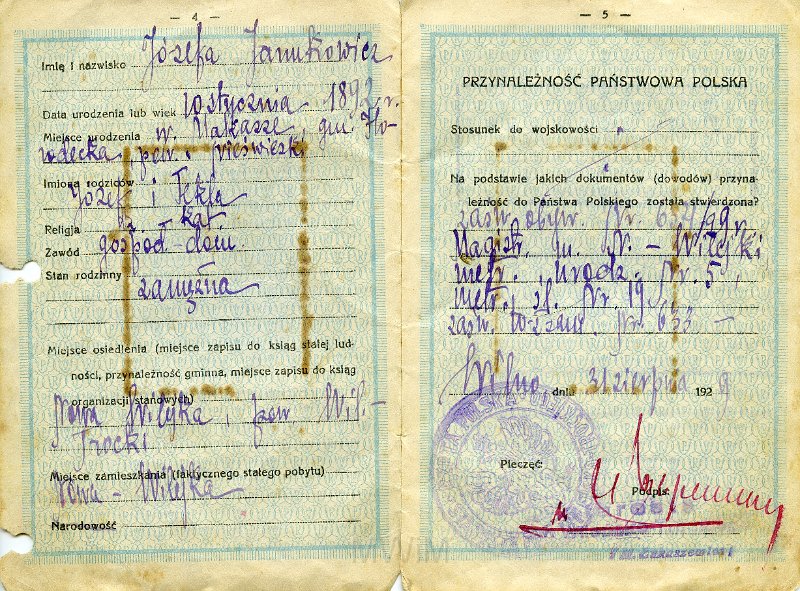 — 4 —
Imię i nazwisko Józefa Janukowicz
Data urodzenia lub wiek 10 stycznia 1892 r.
Miejsce urodzenia w. gm. Ho-
rodecka, pow.
Imiona rodziców
Józef i Tekla
Religja rz.-kat.
Zawód gospod-dom.
Stan rodzinny
zamężna
Miejsce osiedlenia (miejsce zapisu do ksiąg stałej lud-
ności, przynależność gminna, miejsce zapisu do ksiąg
organizacji stanowych)
Nowa Wilejka, pow. Wil.-
Trocki
Miejsce zamieszkania (faktycznego stałego pobytu)
Nowa-Wilejka
Narodowość
— 5 —
PRZYNALEŻNOŚĆ PAŃSTWOWA POLSKA
Stosunek do wojskowości
Na podstawie jakich dokumentów (dowodów) przyna-
leżność do Państwa Polskiego została stwierdzona?
zaśw. obyw. Nr.
Magistr. m. N.-Wilejki
metr. urodz. Nr. 5,
metr. śl. Nr. 19,
zaśw. tożsam. Nr. 633 —
Wilno, dnia 31 sierpnia 1929
Pieczęć:
Podpis: